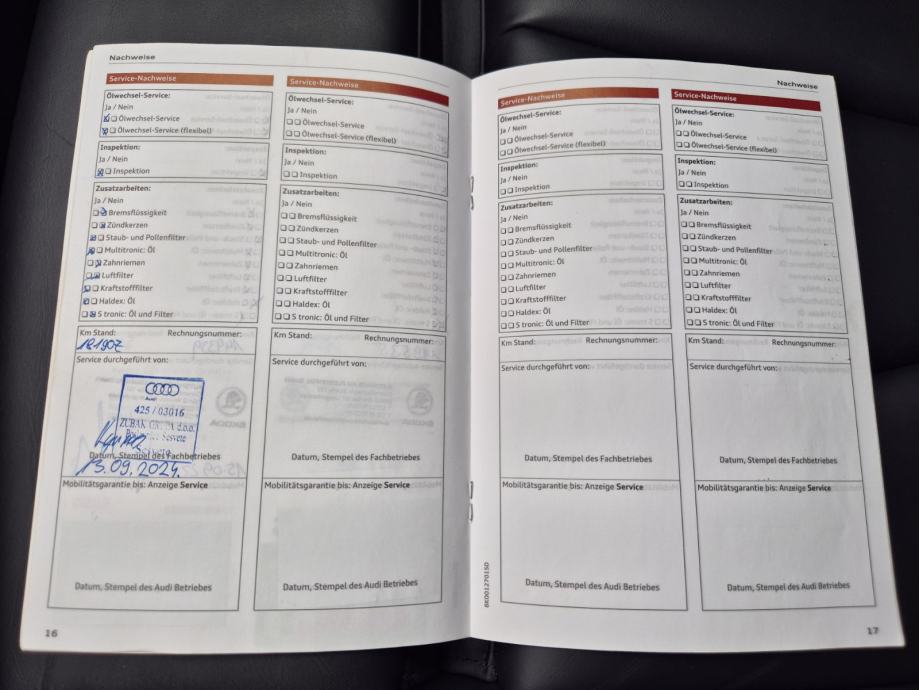 Nachweise
Service-Nachweise
Ölwechsel-Service:
Ja / Nein
Ölwechsel-Service
Ölwechsel-Service (flexibel)
Inspektion:
Ja / Nein
Inspektion
Zusatzarbeiten:
Ja / Nein
Bremsflüssigkeit
Zündkerzen
Staub- und Pollenfilter
Multitronic: Öl
Zahnriemen
Luftfilter
Kraftstofffilter
Haldex: Öl
S tronic: Öl und Filter
Km Stand: Rechnungsnummer:
181907
Service durchgeführt von:
Audi
425 / 03016
ZUBAK GRUPA d.o.o.
Sesvete
Datum, Stempel des Fachbetriebes
13.09.2024.
Mobilitätsgarantie bis: Anzeige Service
Datum, Stempel des Audi Betriebes
16
Service-Nachweise
Ölwechsel-Service:
Ja / Nein
Ölwechsel-Service
Ölwechsel-Service (flexibel)
Inspektion:
Ja / Nein
Inspektion
Zusatzarbeiten:
Ja / Nein
Bremsflüssigkeit
Zündkerzen
Staub- und Pollenfilter
Multitronic: Öl
Zahnriemen
Luftfilter
Kraftstofffilter
Haldex: Öl
S tronic: Öl und Filter
Km Stand: Rechnungsnummer:
Service durchgeführt von:
Datum, Stempel des Fachbetriebes
Mobilitätsgarantie bis: Anzeige Service
Datum, Stempel des Audi Betriebes
Nachweise
Service-Nachweise
Ölwechsel-Service:
Ja / Nein
Ölwechsel-Service
Ölwechsel-Service (flexibel)
Inspektion:
Ja / Nein
Inspektion
Zusatzarbeiten:
Ja / Nein
Bremsflüssigkeit
Zündkerzen
Staub- und Pollenfilter
Multitronic: Öl
Zahnriemen
Luftfilter
Kraftstofffilter
Haldex: Öl
S tronic: Öl und Filter
Km Stand: Rechnungsnummer:
Service durchgeführt von:
Datum, Stempel des Fachbetriebes
Mobilitätsgarantie bis: Anzeige Service
Datum, Stempel des Audi Betriebes
8K0012701SD
Service-Nachweise
Ölwechsel-Service:
Ja / Nein
Ölwechsel-Service
Ölwechsel-Service (flexibel)
Inspektion:
Ja / Nein
Inspektion
Zusatzarbeiten:
Ja / Nein
Bremsflüssigkeit
Zündkerzen
Staub- und Pollenfilter
Multitronic: Öl
Zahnriemen
Luftfilter
Kraftstofffilter
Haldex: Öl
S tronic: Öl und Filter
Km Stand: Rechnungsnummer:
Service durchgeführt von:
Datum, Stempel des Fachbetriebes
Mobilitätsgarantie bis: Anzeige Service
Datum, Stempel des Audi Betriebes
17